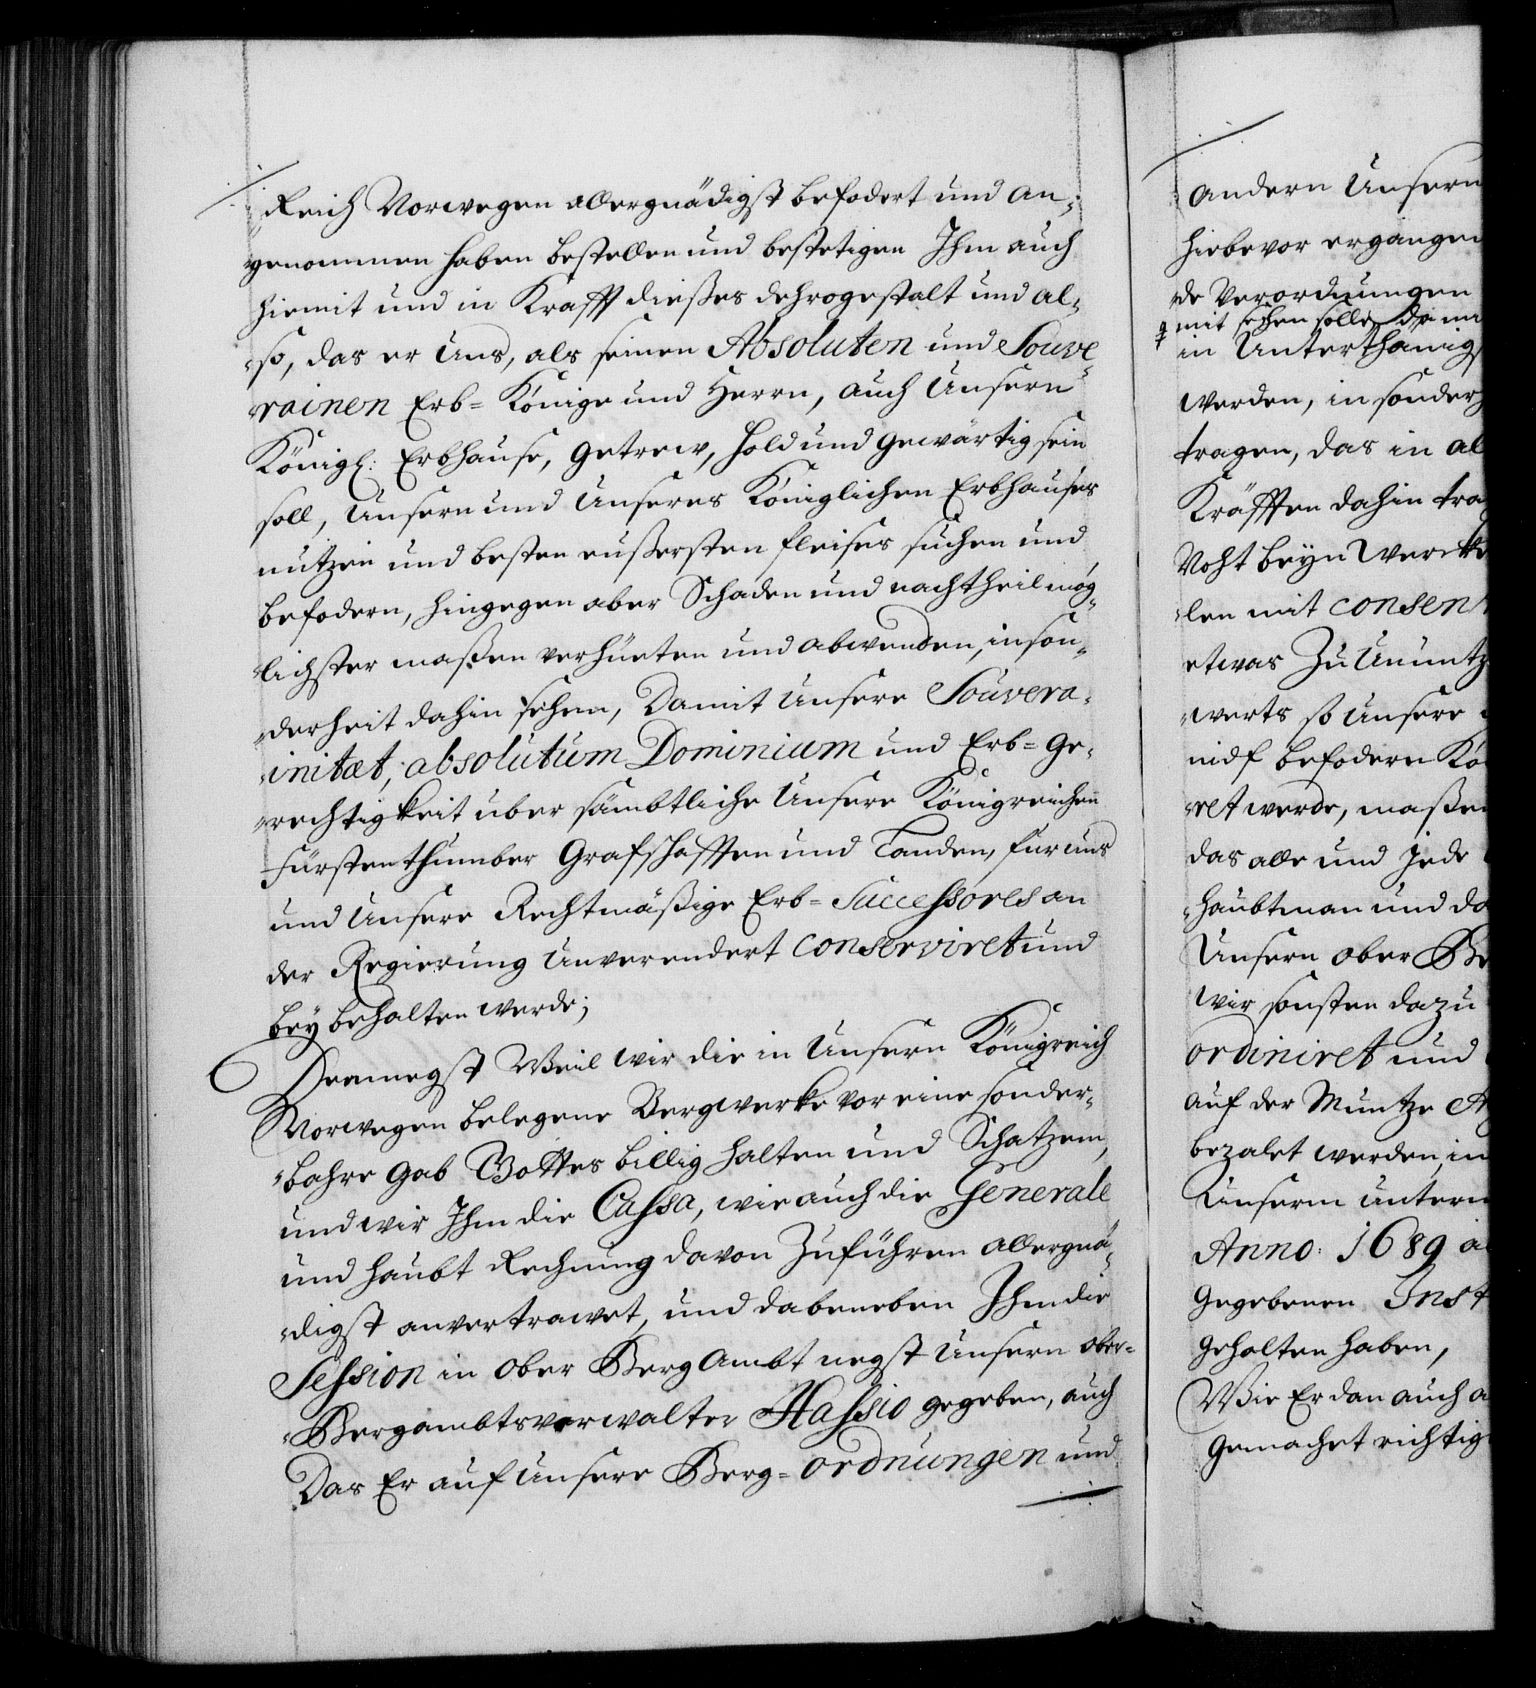 Reich Norwegen allergnädigst befodert und an-
genommen haben bestellen und bestetigen Ihm auch
hiemit und in Krafft dieses dehrogestalt und al-
so, das er Uns, als seinen Absoluten und Souve-
rainen Erb= Könige und Herrn, auch Unserm
Königl: Erbhause, getrew, hold und gewärtig sein
soll, Unsern und Unseres Königlichen Erbhauses
nutzen und besten eußersten fleises suchen und
befodern, hingegen aber Schaden und nachtheil müg-
lichster maßen verhüeten und abwenden, inson-
derheit dahin sehen, Damit Unsere Souvera-
initæt, absolutum Dominium und Erb= Ge-
rechtigkeit uber sämbtliche Unsere Königreichen
Fürstenthumber Grafschafften und Landen, fur uns
und Unsere Rechtmäßige Erb= Successores an
der Regierung Unverendert conserviret und
beybehalten werde;
Demnegst Weil wir die in Unserm Königreich
Norwegen belegene Bergwerke vor eine sonder-
bahre gab Gottes billig halten und Schatzen,
und wir Ihm die Cassa, wie auch die Generale
und haubt Rechnung davon Zuführen allergnä-
digst anvertrawet, und dabeneben Ihm die
Session in Ober Berg Ambt negst Unserm ober-
Bergambtsverwalter Hassio gegeben, auch
Das Er auf Unsere Berg= ordnungen und
andern Unsern
hiebevor ergangen
de Verordnungen
mit sehen solle,
in Unterthänigs
werden, in sonder
tragen, das in al
Kräfften dahin tra
Noht beyn Wercke
len mit consen
etwas Zu Ununtz
werts so Unsere
nicht befodern Kö
ret werde, maßen
das alle und Jede
haubtman und da
Unsern ober Be
wir sonsten dazu
ordiniret und
auf der Muntze
bezalet werden, in
Unserm unterm
Anno: 1689 a
gegebenen Inst
gehalten haben,
Wie Er dan auch a
gemachet richtig